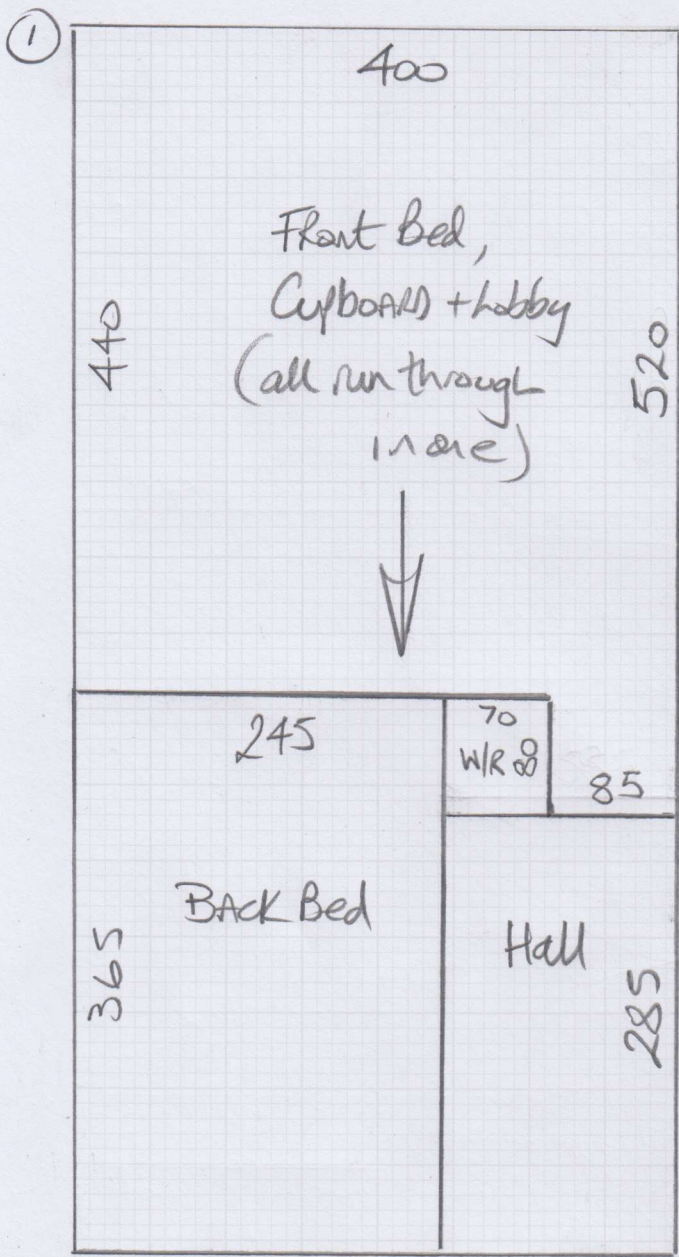 1
400
Front Bed,
CupboARD + Lobby
(all run through
in one)
440
520
245
70
W/R 80
85
BACK Bed
Hall
365
285